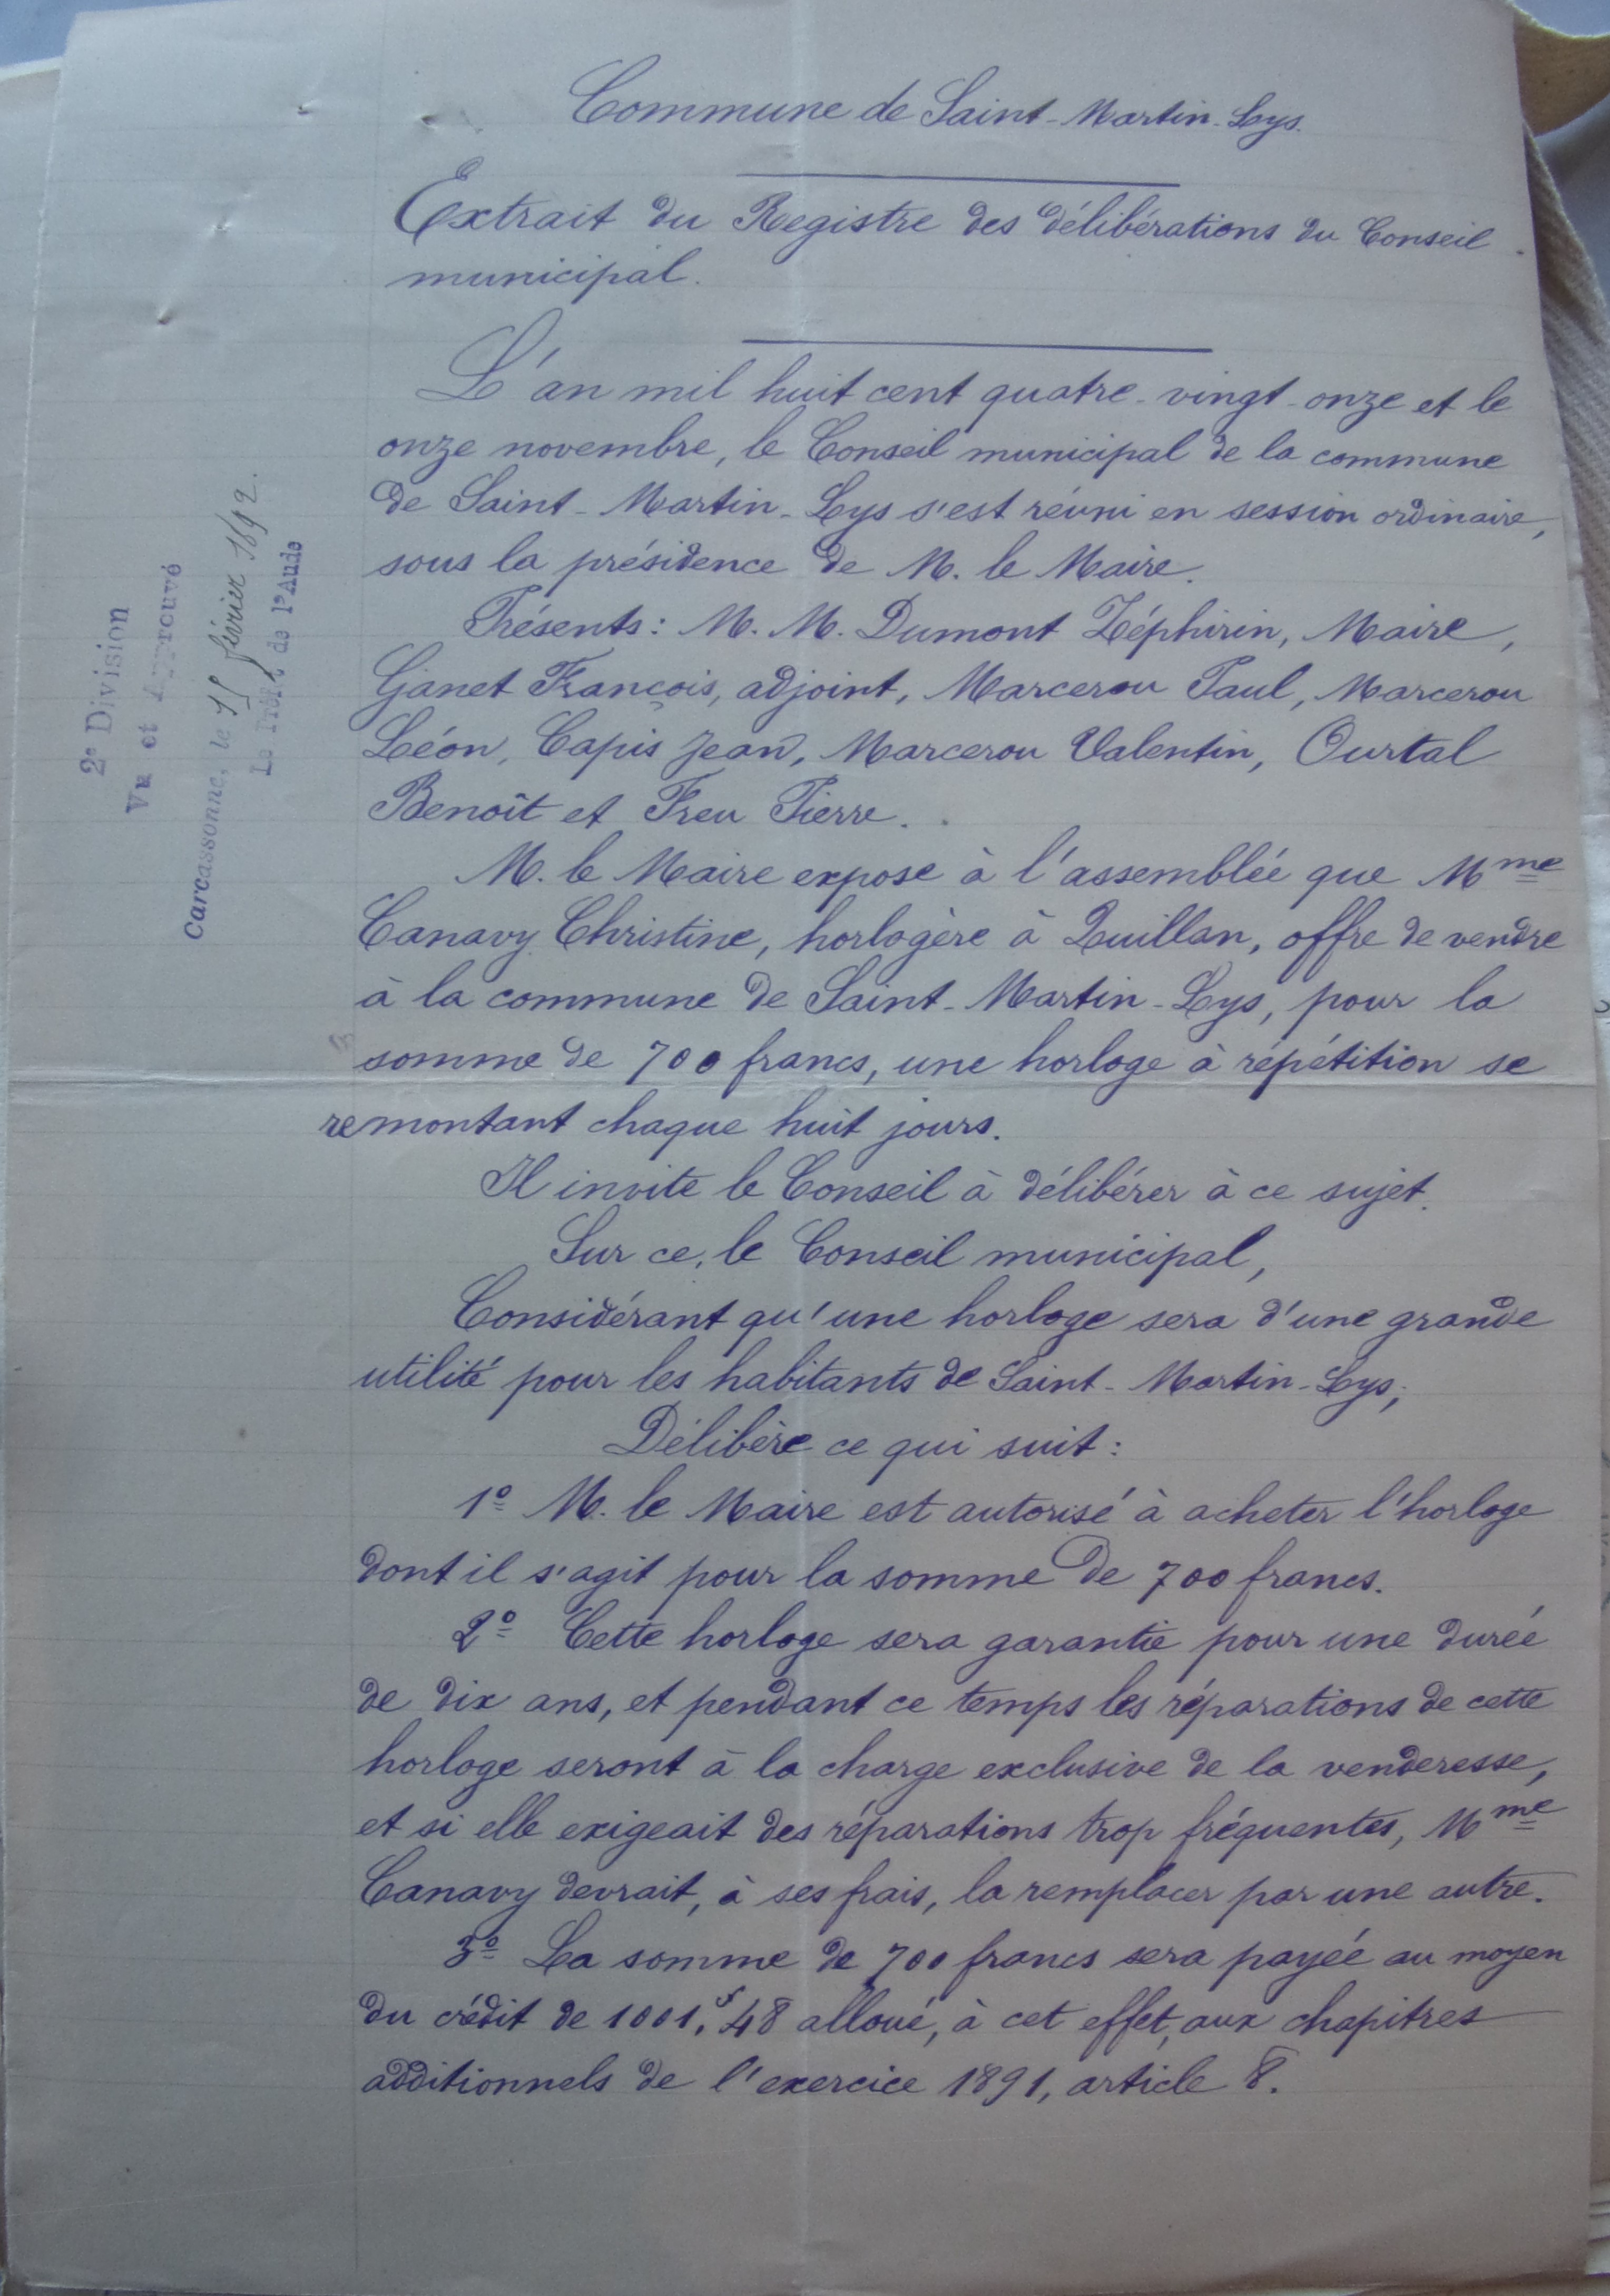 Commune de Saint-Martin-Lys.
Extrait du Registre des délibérations du Conseil
municipal.
L'an mil huit cent quatre-vingt-onze et le
onze novembre, le Conseil municipal de la commune
de Saint-Martin-Lys s'est réuni en session ordinaire,
sous la présidence de M. le Maire.
Présents: M. M. Dumont Zéphirin, Maire,
Ganet François, adjoint, Marcerou Paul, Marcerou
Léon, Capis Jean, Marcerou Valentin, Ourtal
Benoît et Freu Pierre.
M. le Maire expose à l'assemblée que Mme
Canavy Christine, horlogère à Quillan, offre de vendre
à la commune de Saint-Martin-Lys, pour la
somme de 700 francs, une horloge à répétition se
remontant chaque huit jours.
Il invite le Conseil à délibérer à ce sujet.
Sur ce, le Conseil municipal,
Considérant qu'une horloge sera d'une grande
utilité pour les habitants de Saint-Martin-Lys;
Délibère ce qui suit:
1º M. le Maire est autorisé à acheter l'horloge
dont il s'agit pour la somme de 700 francs.
2º Cette horloge sera garantie pour une durée
de dix ans, et pendant ce temps les réparations de cette
horloge seront à la charge exclusive de la venderesse,
et si elle exigeait des réparations trop fréquentes, Mme
Canavy devrait, à ses frais, la remplacer par une autre.
3º La somme de 700 francs sera payée au moyen
du crédit de 1001,f 48 alloué, à cet effet, aux chapitres
additionnels de l'exercice 1891, article 8.
2e Division
Vu et Approuvé
Carcassonne, le février 1892.
Le Préfet de l'Aude